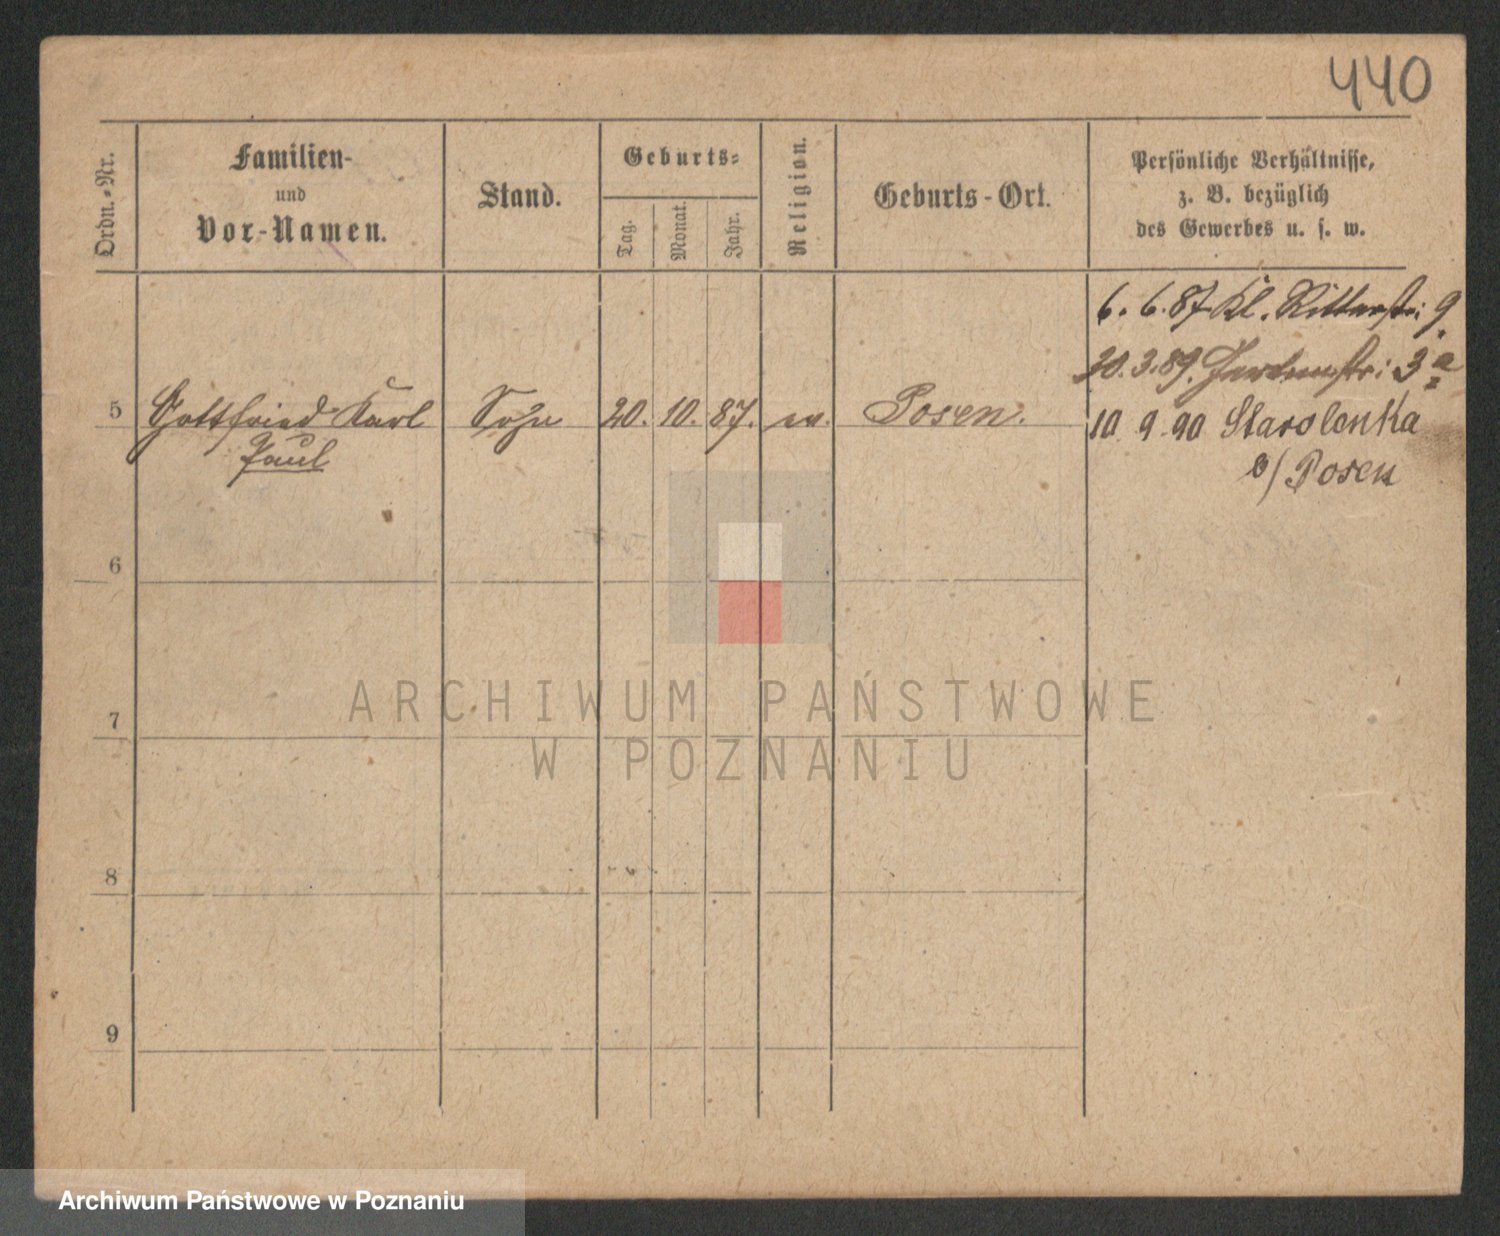 440
Ordn.-Nr.
Familien-
und
Vor-Namen.
Stand.
Geburts-
Tag.
Monat.
Jahr.
Religion.
Geburts-Ort.
Persönliche Verhältnisse,
z. B. bezüglich
des Gewerbes u. s. w.
6. 6. 87 Kl. Ritterstr: 9
20. 3. 89. 3 a
5 Gottfried Karl Sohn 20. 10. 87. ev. Posen. 10. 9. 90 Starolenka
Paul
b/ Posen
6
7
8
9
ARCHIWUM PAŃSTWOWE
W POZNANIU
Archiwum Państwowe w Poznaniu